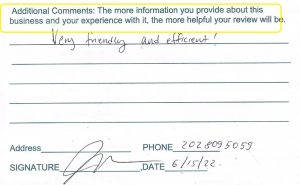 Additional Comments: The more information you provide about this
business and your experience with it, the more helpful your review will be.
Very friendly and efficient!
Address PHONE 2028095059
SIGNATURE DATE 6/15/22